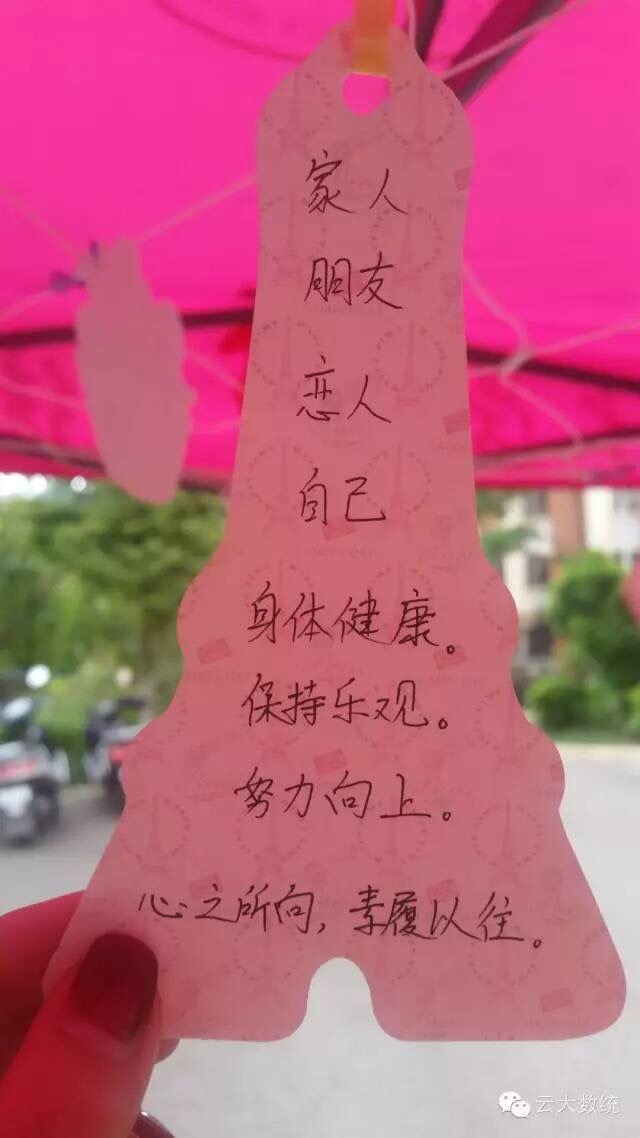 家人
朋友
恋人
自己
身体健康。
保持乐观。
努力向上。
心之所向，素履以往。
云大数统